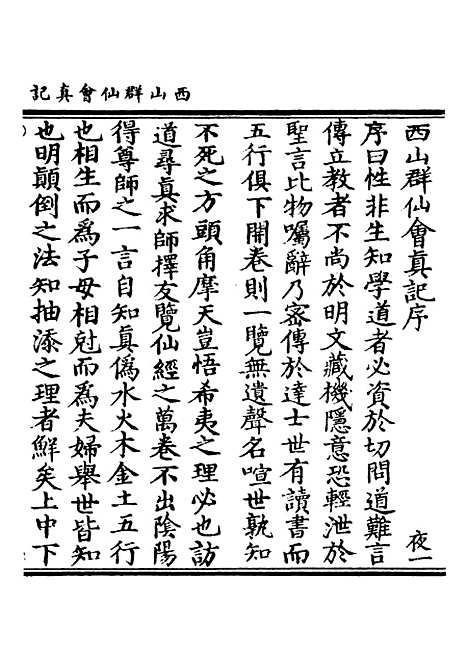 西山群仙會真記
西山群仙會真記序　夜一
序曰性非生知學道者必資於切問道難言
傳立教者不尚於明文藏機隱意恐輕泄於
聖言比物囑辭乃密傳於達士世有讀書而
五行俱下開卷則一覽無遺聲名喧世孰知
不死之方頭角摩天豈悟希夷之理必也訪
道尋眞求師擇友覽仙經之萬卷不出陰陽
得尊師之一言自知眞僞水火木金土五行
也相生而爲子母相尅而爲夫婦舉世皆知
也明顛倒之法知抽添之理者鮮矣上中下